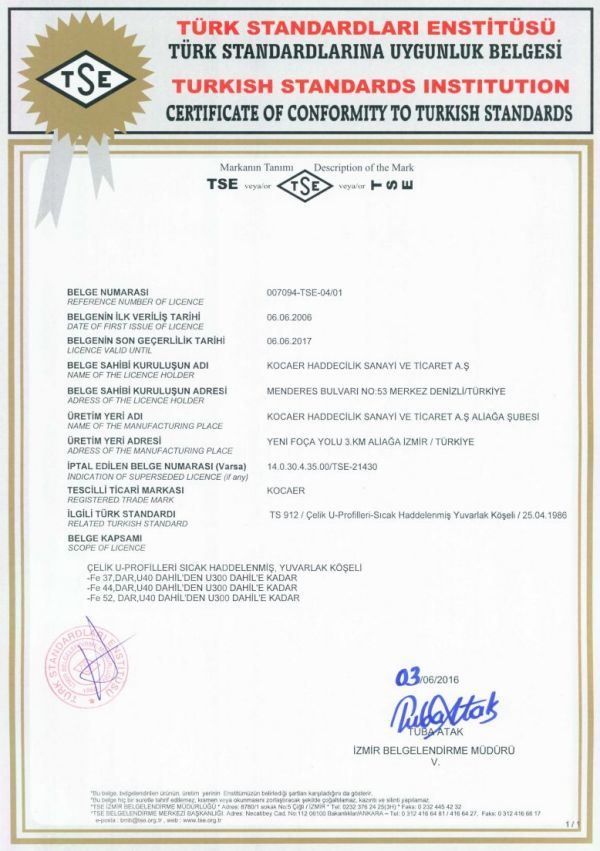 TSE
TÜRK STANDARDLARI ENSTİTÜSÜ
TÜRK STANDARDLARINA UYGUNLUK BELGESİ
TURKISH STANDARDS INSTITUTION
CERTIFICATE OF CONFORMITY TO TURKISH STANDARDS
Markanın Tanımı Description of the Mark
TSE veya/or TSE veya/or TSE
BELGE NUMARASI 007094-TSE-04/01
REFERENCE NUMBER OF LICENCE
BELGENİN İLK VERİLİŞ TARİHİ 06.06.2006
DATE OF FIRST ISSUE OF LICENCE
BELGENİN SON GEÇERLİLİK TARİHİ 06.06.2017
LICENCE VALID UNTIL
BELGE SAHİBİ KURULUŞUN ADI KOCAER HADDECİLİK SANAYİ VE TİCARET A.Ş
NAME OF THE LICENCE HOLDER
BELGE SAHİBİ KURULUŞUN ADRESİ MENDERES BULVARI NO:53 MERKEZ DENİZLİ/TÜRKİYE
ADRESS OF THE LICENCE HOLDER
ÜRETİM YERİ ADI KOCAER HADDECİLİK SANAYİ VE TİCARET A.Ş ALİAĞA ŞUBESİ
NAME OF THE MANUFACTURING PLACE
ÜRETİM YERİ ADRESİ YENİ FOÇA YOLU 3.KM ALİAĞA İZMİR / TÜRKİYE
ADRESS OF THE MANUFACTURING PLACE
İPTAL EDİLEN BELGE NUMARASI (Varsa) 14.0.30.4.35.00/TSE-21430
INDICATION OF SUPERSEDED LICENCE (if any)
TESCİLLİ TİCARİ MARKASI KOCAER
REGISTERED TRADE MARK
İLGİLİ TÜRK STANDARDI TS 912 / Çelik U-Profilleri-Sıcak Haddelenmiş Yuvarlak Köşeli / 25.04.1986
RELATED TURKISH STANDARD
BELGE KAPSAMI
SCOPE OF LICENCE
ÇELİK U-PROFİLLERİ SICAK HADDELENMİŞ, YUVARLAK KÖŞELİ
-Fe 37,DAR,U40 DAHİL'DEN U300 DAHİL'E KADAR
-Fe 44,DAR,U40 DAHİL'DEN U300 DAHİL'E KADAR
-Fe 52, DAR,U40 DAHİL'DEN U300 DAHİL'E KADAR
TÜRK STANDARDLARI ENSTİTÜSÜ
03/06/2016
Tuba Atak
TUBA ATAK
İZMİR BELGELENDİRME MÜDÜRÜ
V.
*Bu belge, belgelendirilen ürünün, üretim yerinin Enstitümüzün belirlediği şartları karşıladığını da gösterir.
*Bu belge hiç bir suretle tahrif edilemez, kısmen veya okunmasını zorlaştıracak şekilde çoğaltılamaz, kazıntı ve silinti yapılamaz.
*TSE İZMİR BELGELENDİRME MÜDÜRLÜĞÜ * Adres: 8780/1 sokak No:5 Çiğli / İZMİR * Tel: 0232 376 24 25(3H) * Faks: 0 232 445 42 32
*TSE BELGELENDİRME MERKEZİ BAŞKANLIĞI * Adres: Necatibey Cad. No:112 06100 Bakanlıklar/ANKARA – Tel: 0 312 416 64 81 / 416 64 27, Faks: 0 312 416 66 17
e-posta : bmb@tse.org.tr , web : www.tse.org.tr
1 / 1